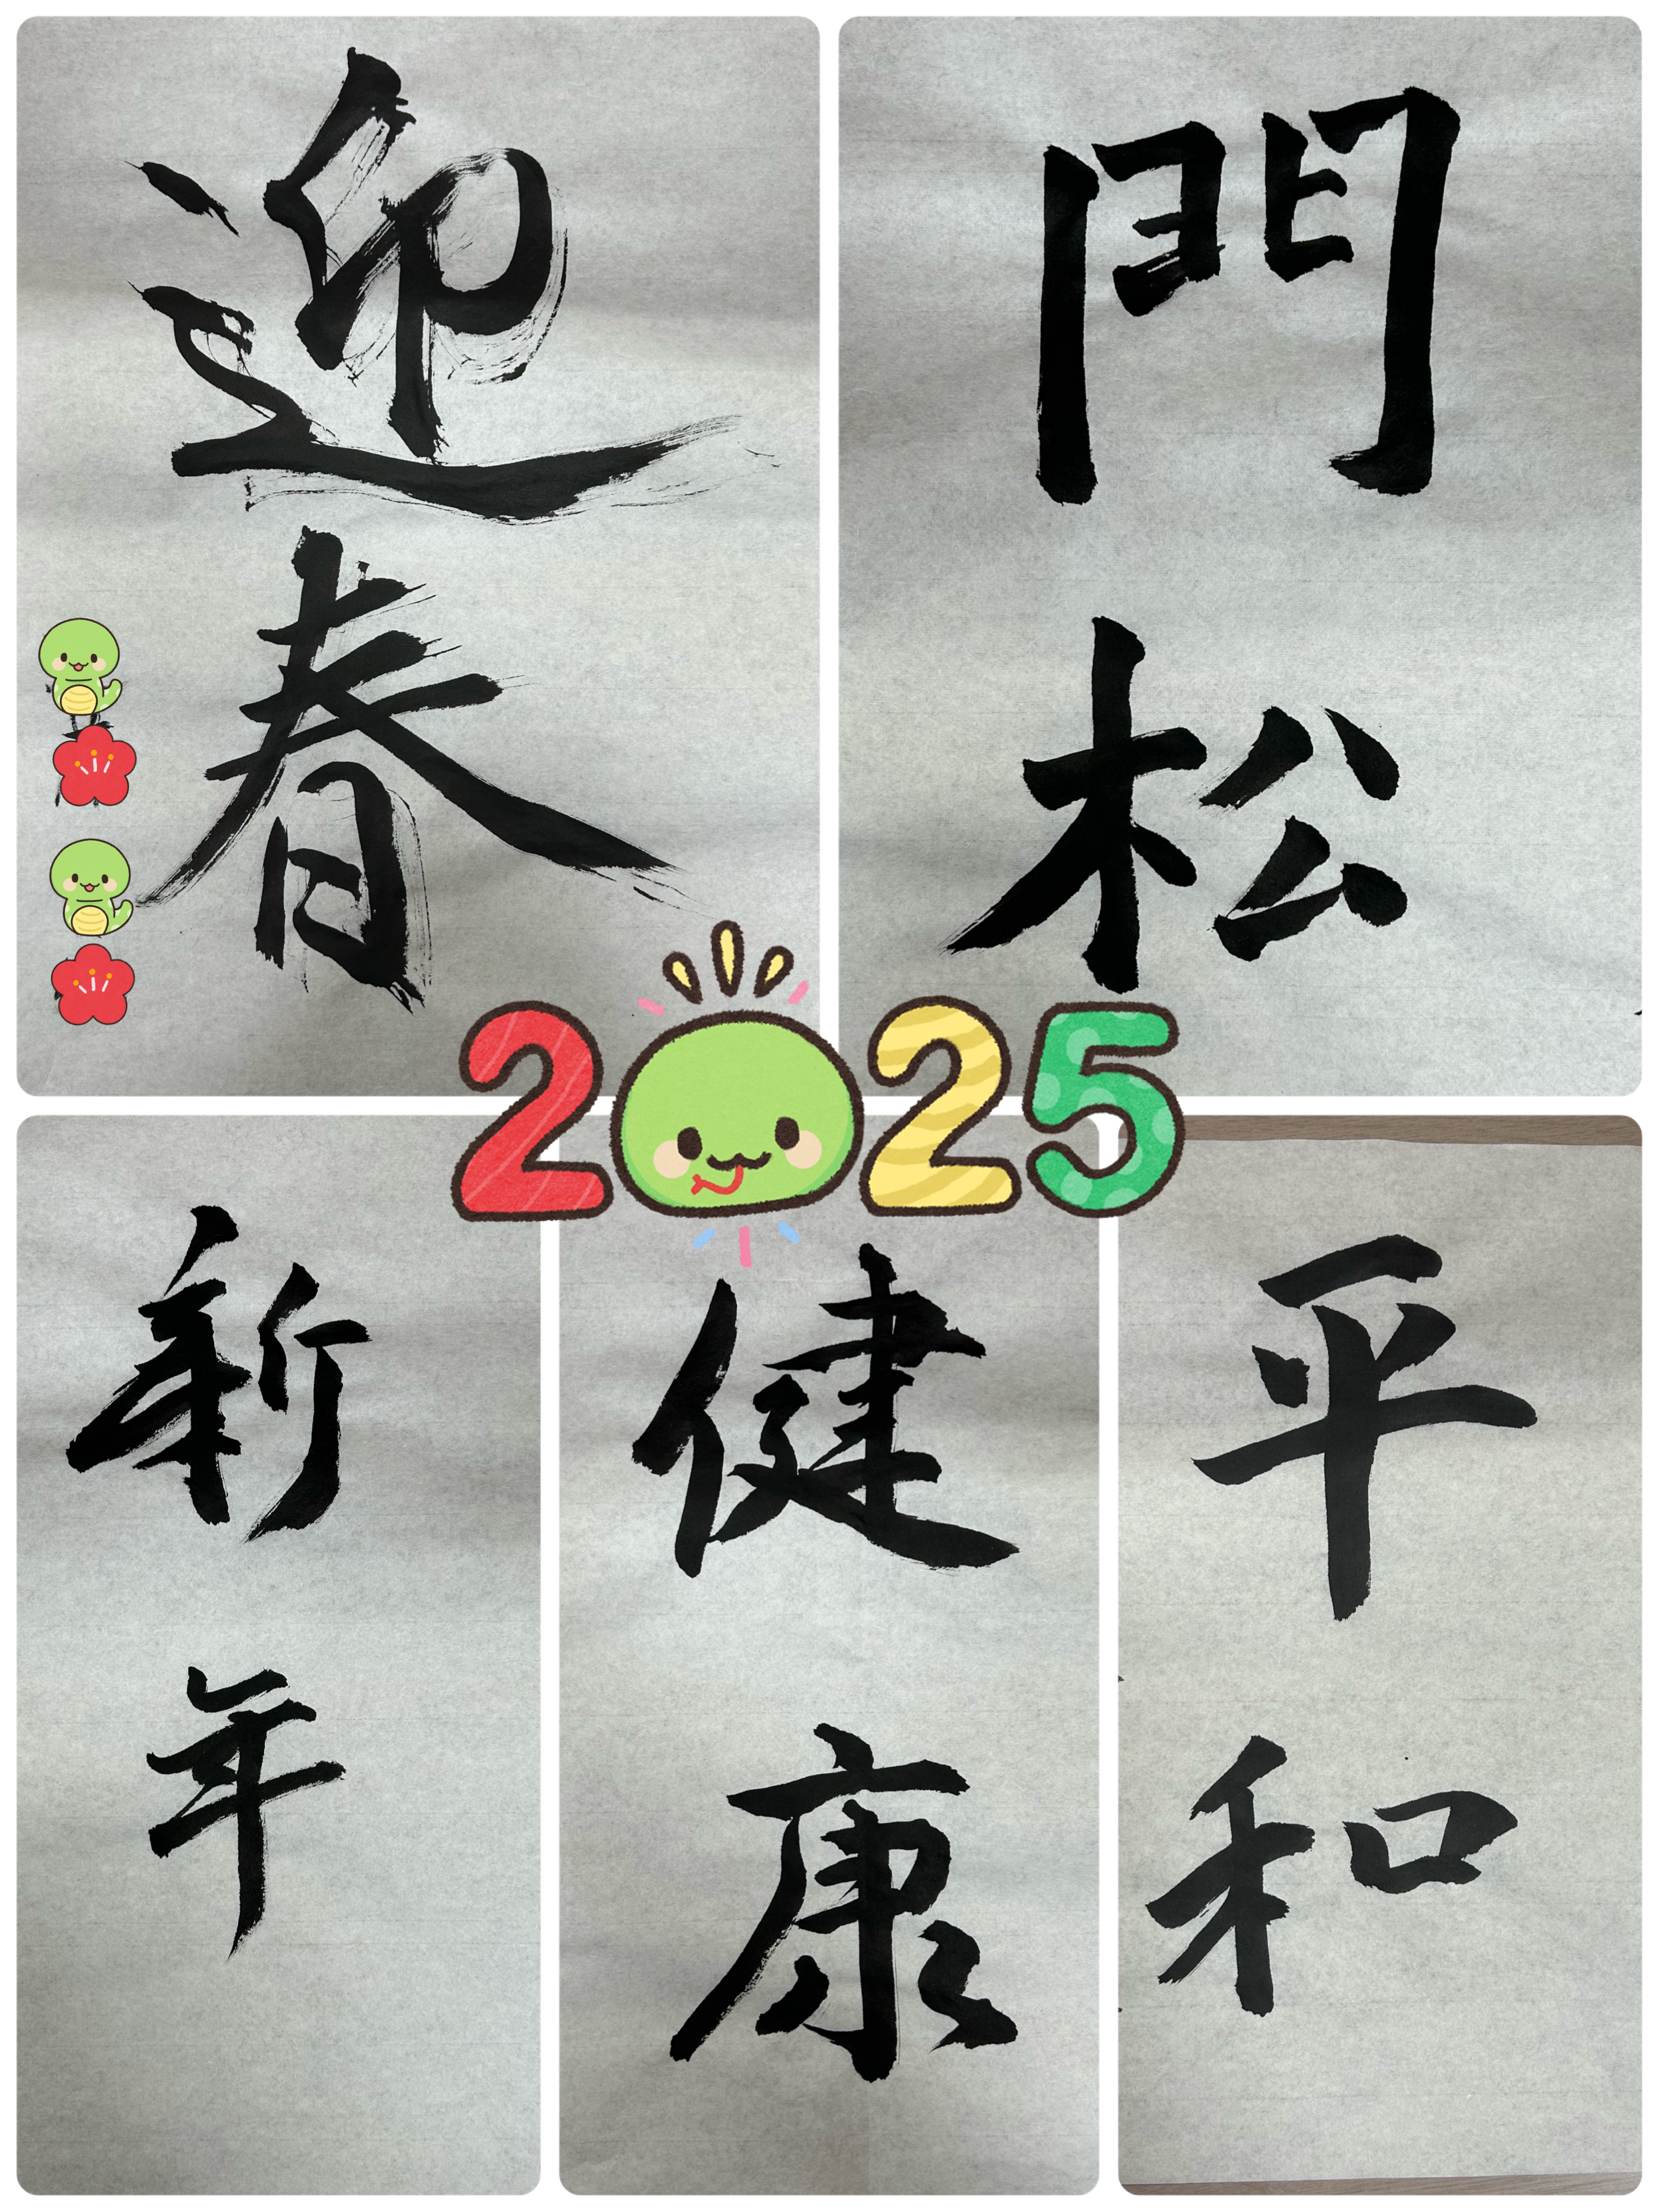 迎春
門松
2025
新年
健康
平和